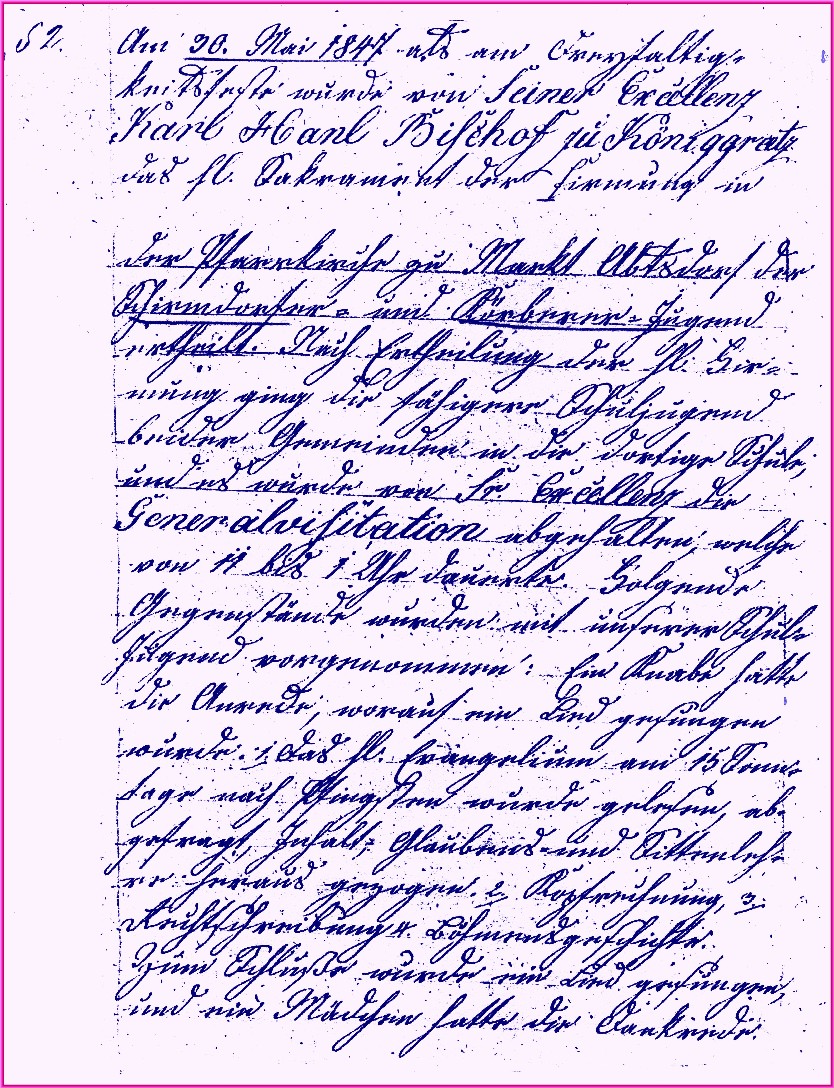 § 2. Am 30. Mai 1847 als am Dreyfaltig-
keitsfeste wurde von Seiner Excellenz
Karl Hanl Bischof zu Königgratz
das hl. Sakrament der Firmung in
der Pfarrkirche zu Markt Abtsdorf der
Schirmdorfer- und Körberer-Jugend
ertheilt. Nach Ertheilung der hl. Fir-
mung ging die fähigere Schuljugend
beider Gemeinden in die dortige Schule,
und es wurde von Sr Excellenz die
Generalvisitation abgehalten, welche
von 11 bis 1 Uhr dauerte. Folgende
Gegenstände wurden mit unserer Schul-
Jugend vorgenommen: Ein Knabe hatte
die Anrede, worauf ein Lied gesungen
wurde. 1, das hl. Evangelium am 15 Sonn-
tage nach Pfingsten wurde gelesen, ab-
gefragt, Inhalt, Glaubens- und Sittenleh-
re heraus gezogen. 2, Kopfrechnung, 3.
Rechtschreibung 4. Böhmensgeschichte.
Zum Schluße wurde ein Lied gesungen,
und ein Mädchen hatte die Dankrede.